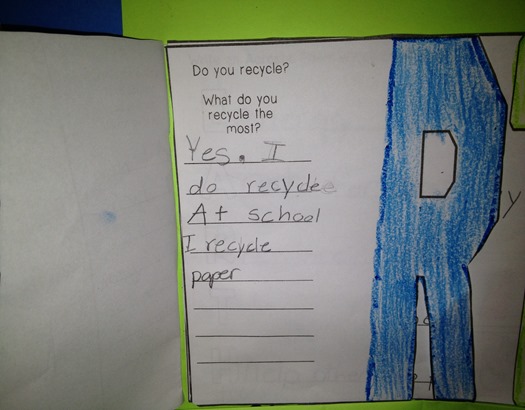 Do you recycle?
What do you
recycle the
most?
Yes. I
do recycle
At school
I recycle
paper
R
y